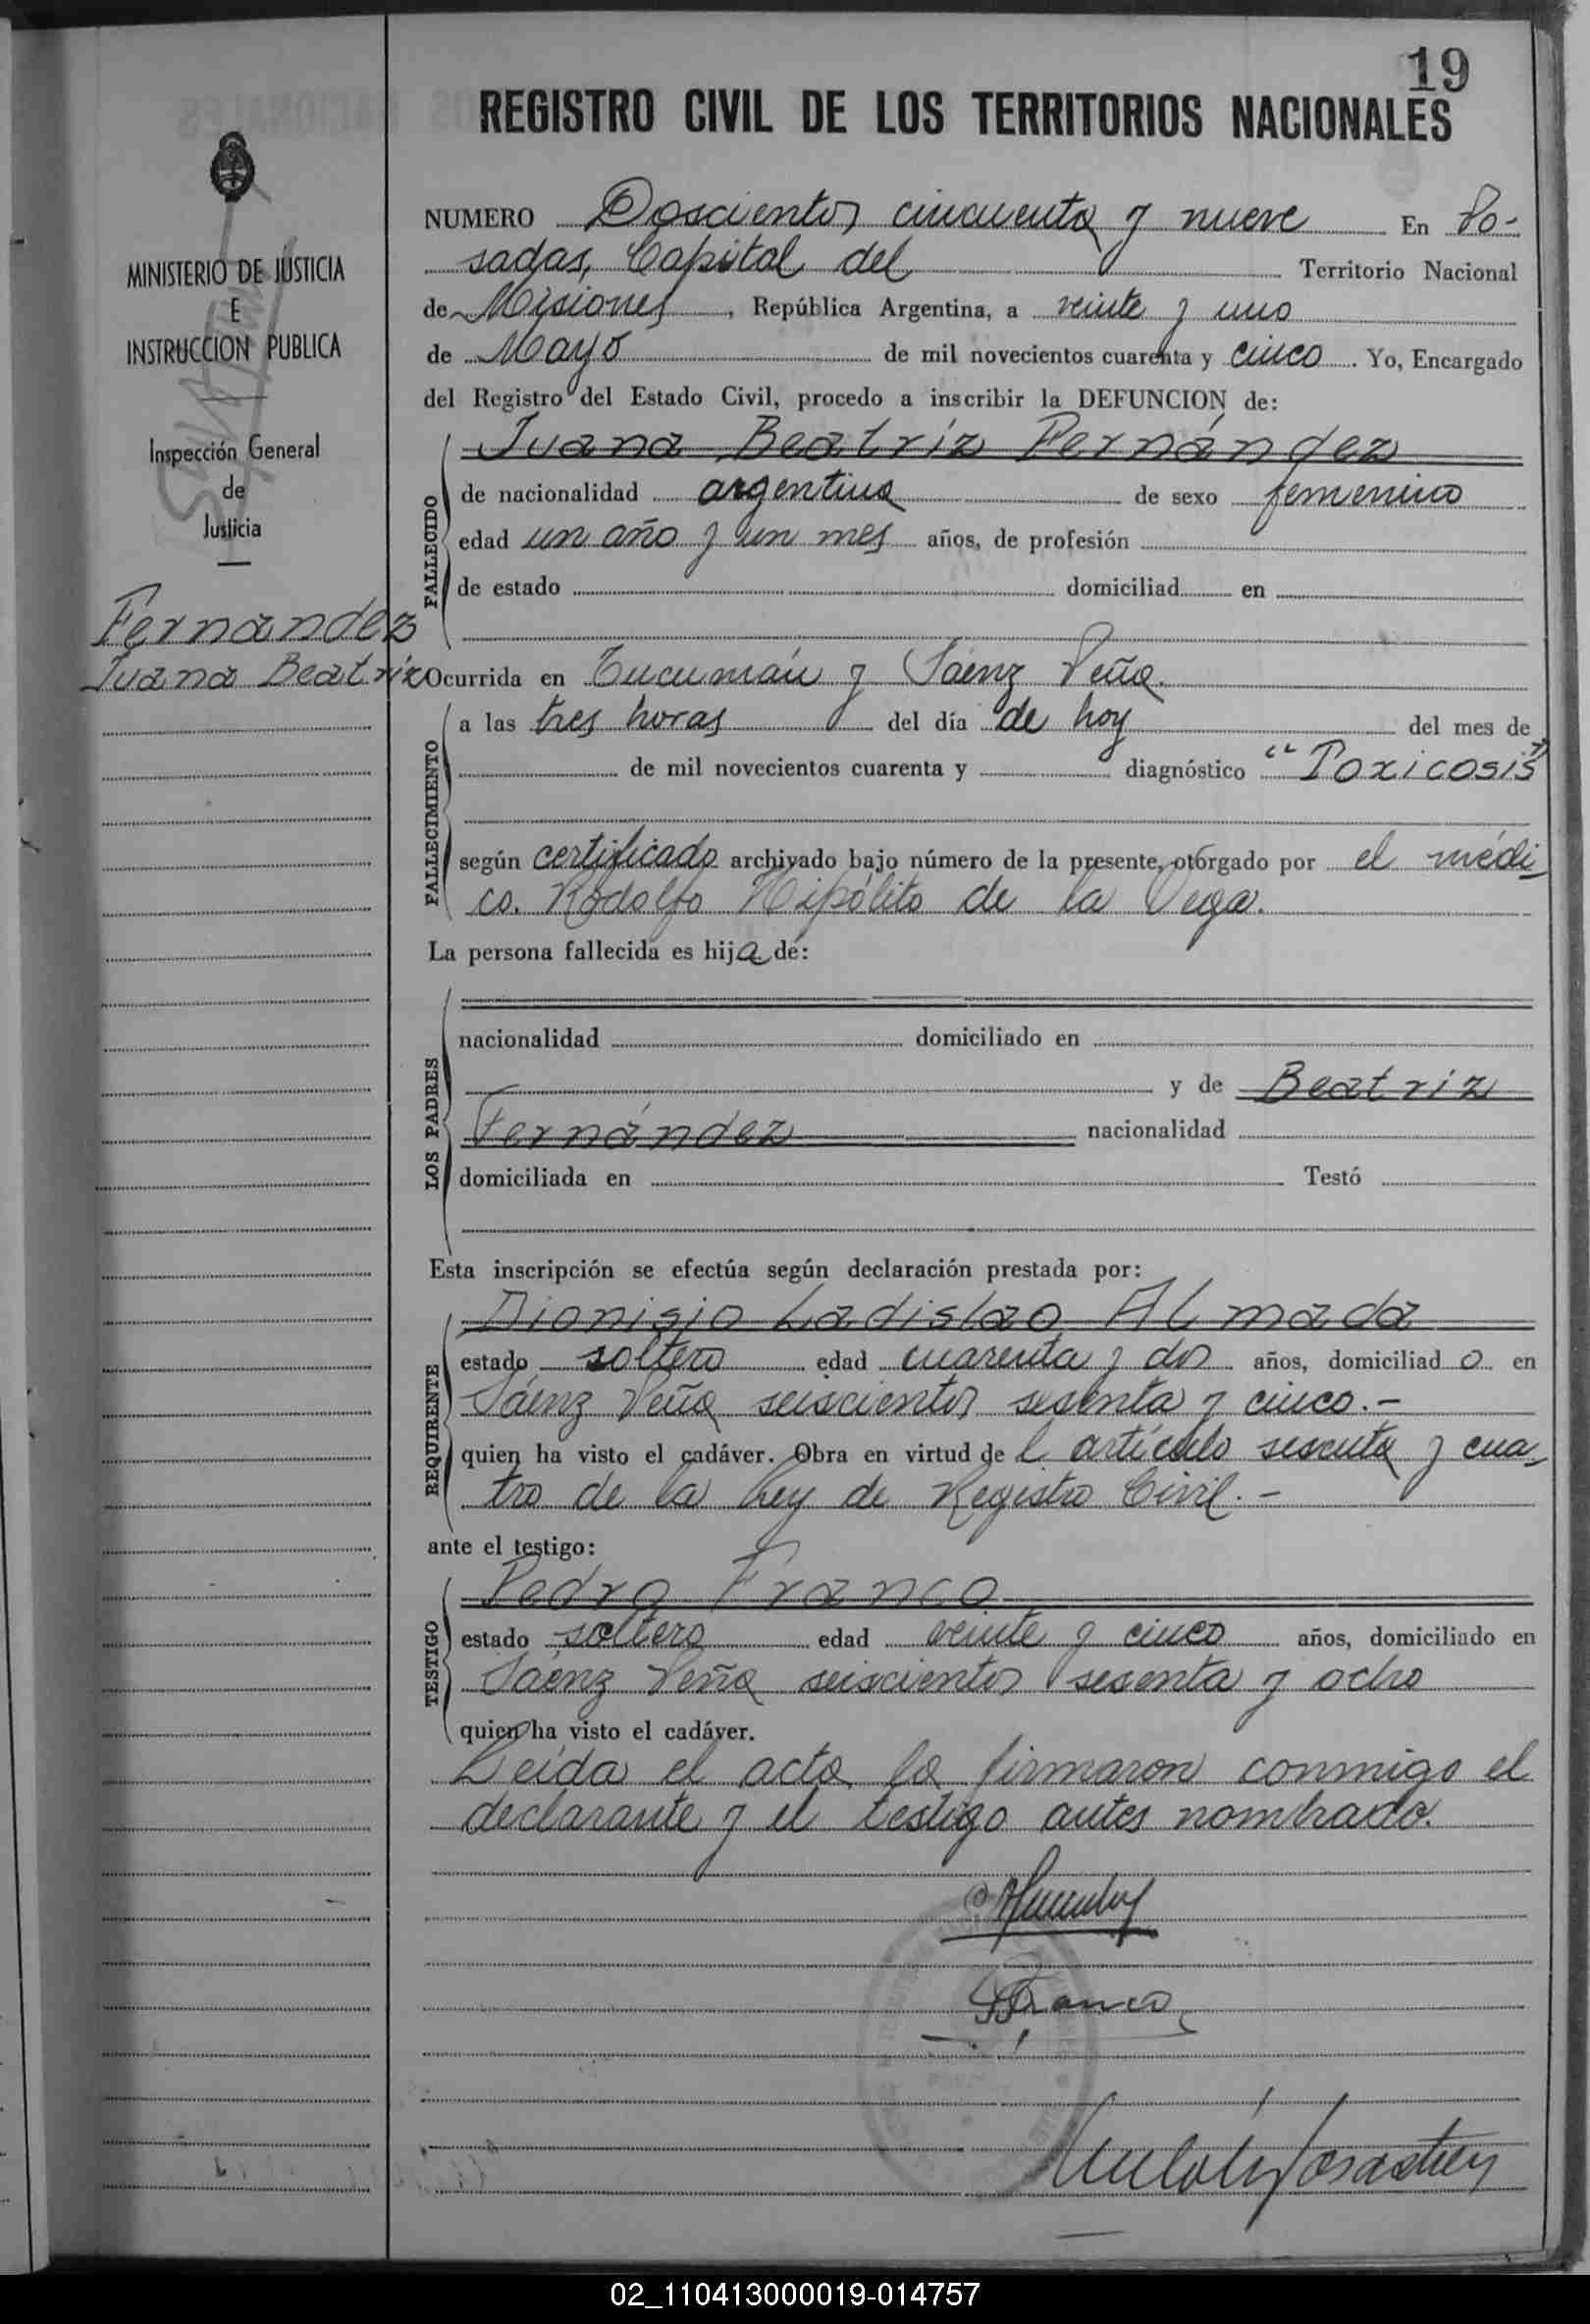 19
REGISTRO CIVIL DE LOS TERRITORIOS NACIONALES
MINISTERIO DE JUSTICIA
E
INSTRUCCION PUBLICA
Inspección General
de
Justicia
Fernandez
Juana Beatríz
NUMERO Doscientos cincuenta y nueve En Po-
sadas, Capital del Territorio Nacional
de Misiones, República Argentina, a veinte y uno
de Mayo de mil novecientos cuarenta y cinco. Yo, Encargado
del Registro del Estado Civil, procedo a inscribir la DEFUNCION de:
FALLECIDO
Juana Beatríz Fernández
de nacionalidad argentina de sexo femenino
edad un año y un mes años, de profesión
de estado domiciliad en
Ocurrida en Tucumán y Sáenz Peña.
FALLECIMIENTO
a las tres horas del día de hoy del mes de
de mil novecientos cuarenta y diagnóstico "Toxicosis"
según certificado archivado bajo número de la presente, otorgado por el médi-
co. Rodolfo Hipólito de la Vega.
La persona fallecida es hija de:
LOS PADRES
nacionalidad domiciliado en
y de Beatríz
Fernández nacionalidad
domiciliada en Testó
Esta inscripción se efectúa según declaración prestada por:
REQUIRENTE
Dionisio Ladislao Almada
estado soltero edad cuarenta y dos años, domiciliado en
Sáenz Peña seiscientos sesenta y cinco.-
quien ha visto el cadáver. Obra en virtud del artículo sesenta y cua-
tro de la Ley de Registro Civil.-
ante el testigo:
TESTIGO
Pedro Franco
estado soltero edad veinte y cinco años, domiciliado en
Sáenz Peña seiscientos sesenta y ocho
quien ha visto el cadáver.
Leída el acta la firmaron conmigo el
declarante y el testigo antes nombrado.
Franco
02_110413000019-014757